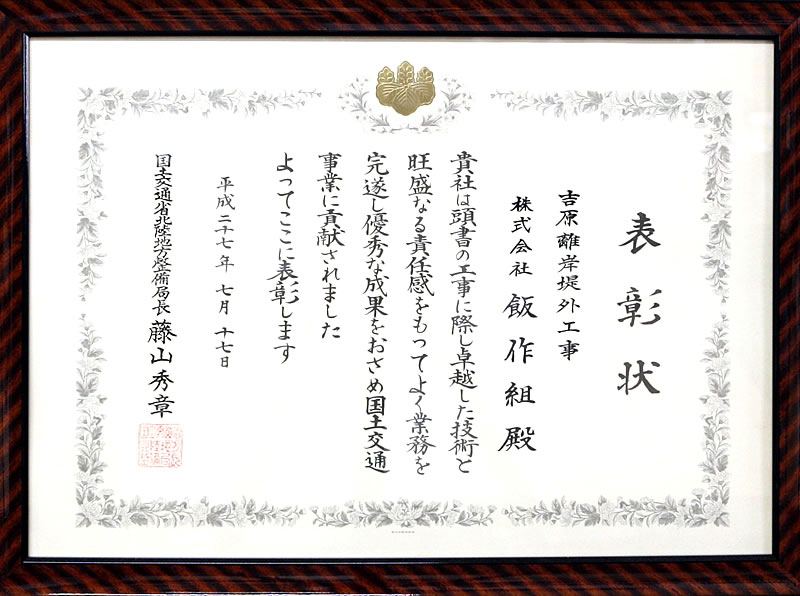 表彰状
吉原離岸堤外工事
株式会社 飯作組 殿
貴社は頭書の工事に際し卓越した技術と
旺盛なる責任感をもってよく業務を
完遂し優秀な成果をおさめ国土交通
事業に貢献されました
よってここに表彰します
平成二十七年 七月 十七日
国土交通省北陸地方整備局長 藤山秀章